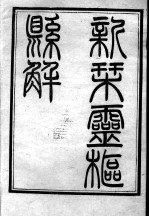 新栞靈樞
縣解